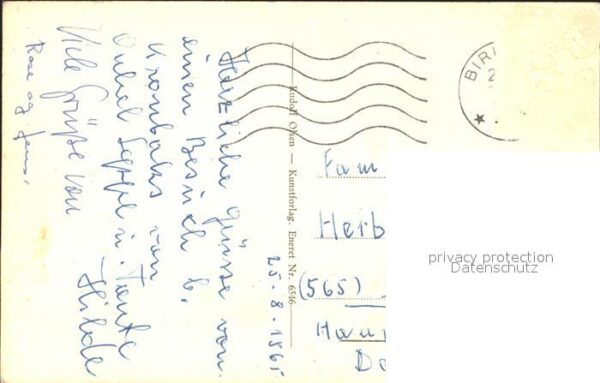 25.8.1965
Herzliche Grüsse von
einen Besuch b.
Kronbaks von
Onkel Seppel u. Tante
Hilde
Viele Grüße von
Rose og Jens.
Rudolf Olsen — Kunstforlag. Eneret Nr. 6566
BIRI
Fam
Herb
(565)
Han
privacy protection
Datenschutz